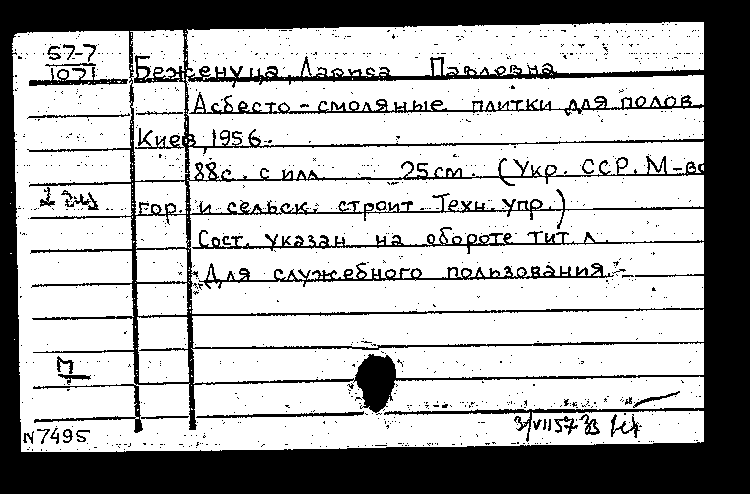 57-7
1071
Беженуца, Лариса Павловна
Асбесто-смоляные плитки для полов
Киев, 1956.
88с. с илл. 25см. (Укр. ССР. М-во
гор. и сельск. строит. Техн. упр.)
Сост. указан на обороте тит. л.
Для служебного пользования.-
М
N7495
3/VII57